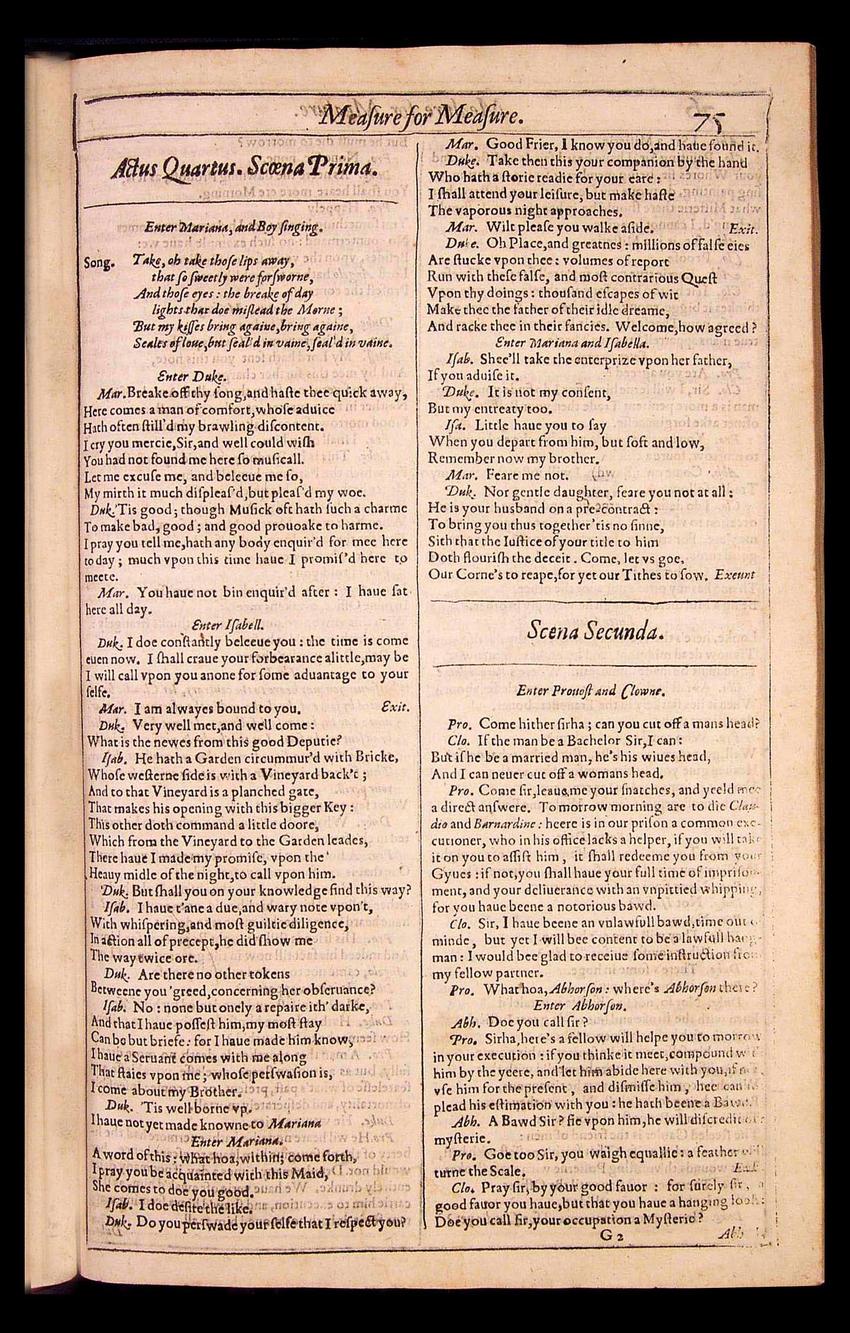 Meaſure for Meaſure.
75
Actus Quartus. Scœna Prima.
Enter Mariana, and Boy ſinging.
Song. Take, oh take thoſe lips away,
that ſo ſweetly were forſworne,
And thoſe eyes: the breake of day
lights that doe miſlead the Morne;
But my kiſſes bring againe, bring againe,
Seales of loue, but ſeal'd in vaine, ſeal'd in vaine.
Enter Duke.
Mar. Breake off thy ſong, and haſte thee quick away,
Here comes a man of comfort, whoſe aduice
Hath often ſtill'd my brawling diſcontent.
I cry you mercie, Sir, and well could wiſh
You had not found me here ſo muſicall.
Let me excuſe me, and beleeue me ſo,
My mirth it much diſpleaſ'd, but pleaſ'd my woe.
Duk. 'Tis good; though Muſick oft hath ſuch a charme
To make bad, good; and good prouoake to harme.
I pray you tell me, hath any body enquir'd for mee here
to day; much vpon this time haue I promiſ'd here to
meete.
Mar. You haue not bin enquir'd after: I haue ſat
here all day.
Enter Iſabell.
Duk. I doe conſtantly beleeue you: the time is come
euen now. I ſhall craue your forbearance alittle, may be
I will call vpon you anone for ſome aduantage to your
ſelfe.
Mar. I am alwayes bound to you. Exit.
Duk. Very well met, and well come:
What is the newes from this good Deputie?
Iſab. He hath a Garden circummur'd with Bricke,
Whoſe weſterne ſide is with a Vineyard back't;
And to that Vineyard is a planched gate,
That makes his opening with this bigger Key:
This other doth command a little doore,
Which from the Vineyard to the Garden leades,
There haue I made my promiſe, vpon the
Heauy midle of the night, to call vpon him.
Duk. But ſhall you on your knowledge find this way?
Iſab. I haue t'ane a due, and wary note vpon't,
With whiſpering, and moſt guiltie diligence,
In action all of precept, he did ſhow me
The way twice ore.
Duk. Are there no other tokens
Betweene you 'greed, concerning her obſeruance?
Iſab. No: none but onely a repaire ith' darke,
And that I haue poſſeſt him, my moſt ſtay
Can be but briefe: for I haue made him know,
I haue a Seruant comes with me along
That ſtaies vpon me; whoſe perſwaſion is,
I come about my Brother.
Duk. 'Tis well borne vp.
I haue not yet made knowne to Mariana
Enter Mariana.
A word of this: what hoa, within; come forth,
I pray you be acquainted with this Maid,
She comes to doe you good.
Iſab. I doe deſire the like.
Duk. Do you perſwade your ſelfe that I reſpect you?
Mar. Good Frier, I know you do, and haue found it.
Duke. Take then this your companion by the hand
Who hath a ſtorie readie for your eare:
I ſhall attend your leiſure, but make haſte
The vaporous night approaches.
Mar. Wilt pleaſe you walke aſide. Exit.
Duke. Oh Place, and greatnes: millions of falſe eies
Are ſtucke vpon thee: volumes of report
Run with theſe falſe, and moſt contrarious Queſt
Vpon thy doings: thouſand eſcapes of wit
Make thee the father of their idle dreame,
And racke thee in their fancies. Welcome, how agreed?
Enter Mariana and Iſabella.
Iſab. Shee'll take the enterprize vpon her father,
If you aduiſe it.
Duke. It is not my conſent,
But my entreaty too.
Iſa. Little haue you to ſay
When you depart from him, but ſoft and low,
Remember now my brother.
Mar. Feare me not.
Duk. Nor gentle daughter, feare you not at all:
He is your husband on a pre-contract:
To bring you thus together 'tis no ſinne,
Sith that the Iuſtice of your title to him
Doth flouriſh the deceit. Come, let vs goe,
Our Corne's to reape, for yet our Tithes to ſow. Exeunt
Scena Secunda.
Enter Prouoſt and Clowne.
Pro. Come hither ſirha; can you cut off a mans head?
Clo. If the man be a Bachelor Sir, I can:
But if he be a married man, he's his wiues head,
And I can neuer cut off a womans head.
Pro. Come ſir, leaue me your ſnatches, and yeeld mee
a direct anſwere. To morrow morning are to die Clau-
dio and Barnardine: heere is in our priſon a common exe-
cutioner, who in his office lacks a helper, if you will take
it on you to aſſiſt him, it ſhall redeeme you from your
Gyues: if not, you ſhall haue your full time of impriſon-
ment, and your deliuerance with an vnpittied whipping;
for you haue beene a notorious bawd.
Clo. Sir, I haue beene an vnlawfull bawd, time out
minde, but yet I will bee content to be a lawfull hang-
man: I would bee glad to receiue ſome inſtruction
my fellow partner.
Pro. What hoa, Abhorſon: where's Abhorſon there?
Enter Abhorſon.
Abh. Doe you call ſir?
Pro. Sirha, here's a fellow will helpe you to morrow
in your execution: if you thinke it meet, compound
him by the yeere, and let him abide here with you, if
vſe him for the preſent, and diſmiſſe him, hee
plead his eſtimation with you: he hath beene a Bawd.
Abh. A Bawd Sir? fie vpon him, he will diſcredit
myſterie.
Pro. Goe too Sir, you waigh equallie: a feather
turne the Scale. Exit.
Clo. Pray ſir, by your good fauor: for ſurely ſir, a
good fauor you haue, but that you haue a hanging look:
Doe you call ſir, your occupation a Myſterie?
G 2
Abh